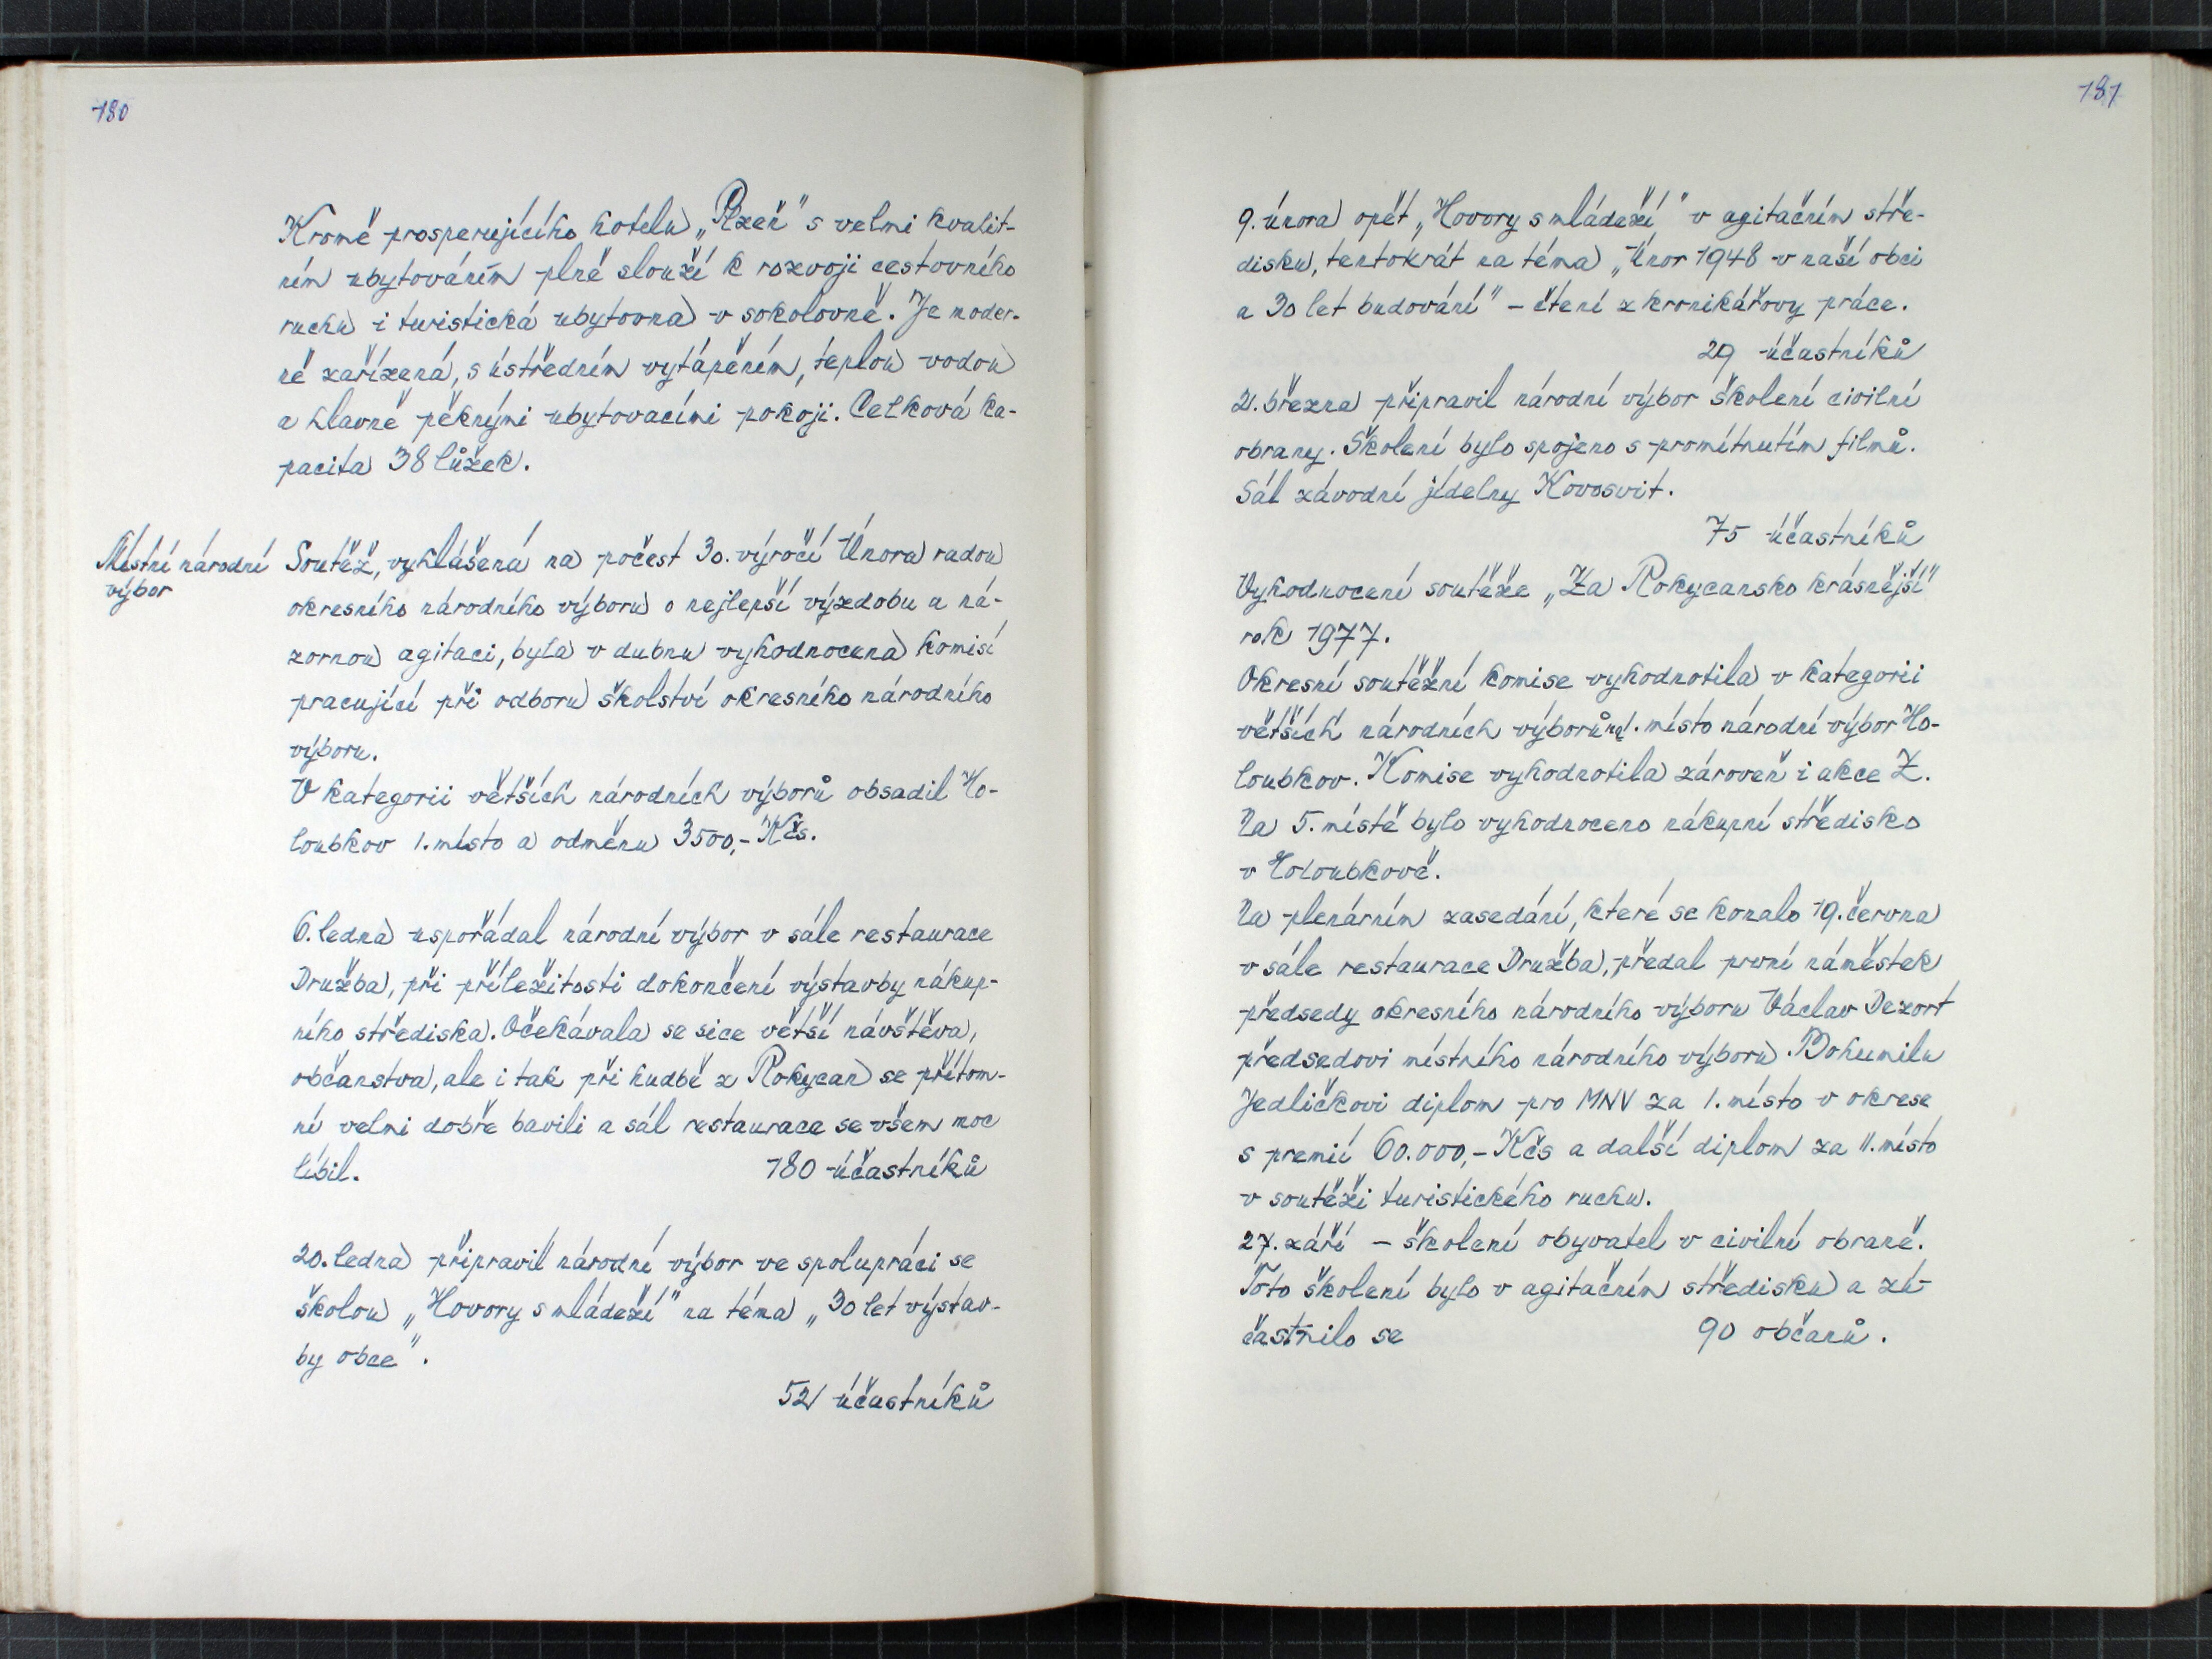 180
Kromě prosperujícího hotelu „Plzeň" s velmi kvalit-
ním ubytováním plně slouží k rozvoji cestovního
ruchu i turistická ubytovna v sokolovně. Je moder-
ně zařízená, s ústředním vytápěním, teplou vodou
a hlavně pěknými ubytovacími pokoji. Celková ka-
pacita 38 lůžek.
Místní národní
výbor
Soutěž, vyhlášená na počest 30. výročí Února radou
okresního národního výboru o nejlepší výzdobu a ná-
zornou agitaci, byla v dubnu vyhodnocena komisí
pracující při odboru školství okresního národního
výboru.
V kategorii větších národních výborů obsadil Ho-
loubkov 1. místo a odměnu 3500,- Kčs.
6. ledna uspořádal národní výbor v sále restaurace
Družba, při příležitosti dokončení výstavby nákup-
ního střediska. Očekávala se sice větší návštěva,
občanstva, ale i tak při hudbě z Rokycan se přítom-
ní velmi dobře bavili a sál restaurace se všem moc
líbil. 180 účastníků
20. ledna připravil národní výbor ve spolupráci se
školou „Hovory s mládeží" na téma „30 let výstav-
by obce".
52 účastníků
181
9. února opět „Hovory s mládeží" v agitačním stře-
disku, tentokrát na téma „Únor 1948 v naší obci
a 30 let budování" - čtení z kronikářovy práce.
29 účastníků
2. března připravil národní výbor školení civilní
obrany. Školení bylo spojeno s promítnutím filmů.
Sál závodní jídelny Kovosvit.
75 účastníků
Vyhodnocení soutěže „Za Rokycansko krásnější"
rok 1977.
Okresní soutěžní komise vyhodnotila v kategorii
větších národních výborů na 1. místo národní výbor Ho-
loubkov. Komise vyhodnotila zároveň i akce Z.
Na 5. místě bylo vyhodnoceno nákupní středisko
v Holoubkově.
Na plenárním zasedání, které se konalo 19. června
v sále restaurace Družba, předal první náměstek
předsedy okresního národního výboru Václav Dezort
předsedovi místního národního výboru Bohumilu
Jedličkovi diplom pro MNV za 1. místo v okrese
s premií 60.000,- Kčs a další diplom za II. místo
v soutěži turistického ruchu.
27. září - školení obyvatel v civilní obraně.
Toto školení bylo v agitačním středisku a zú-
častnilo se 90 občanů.